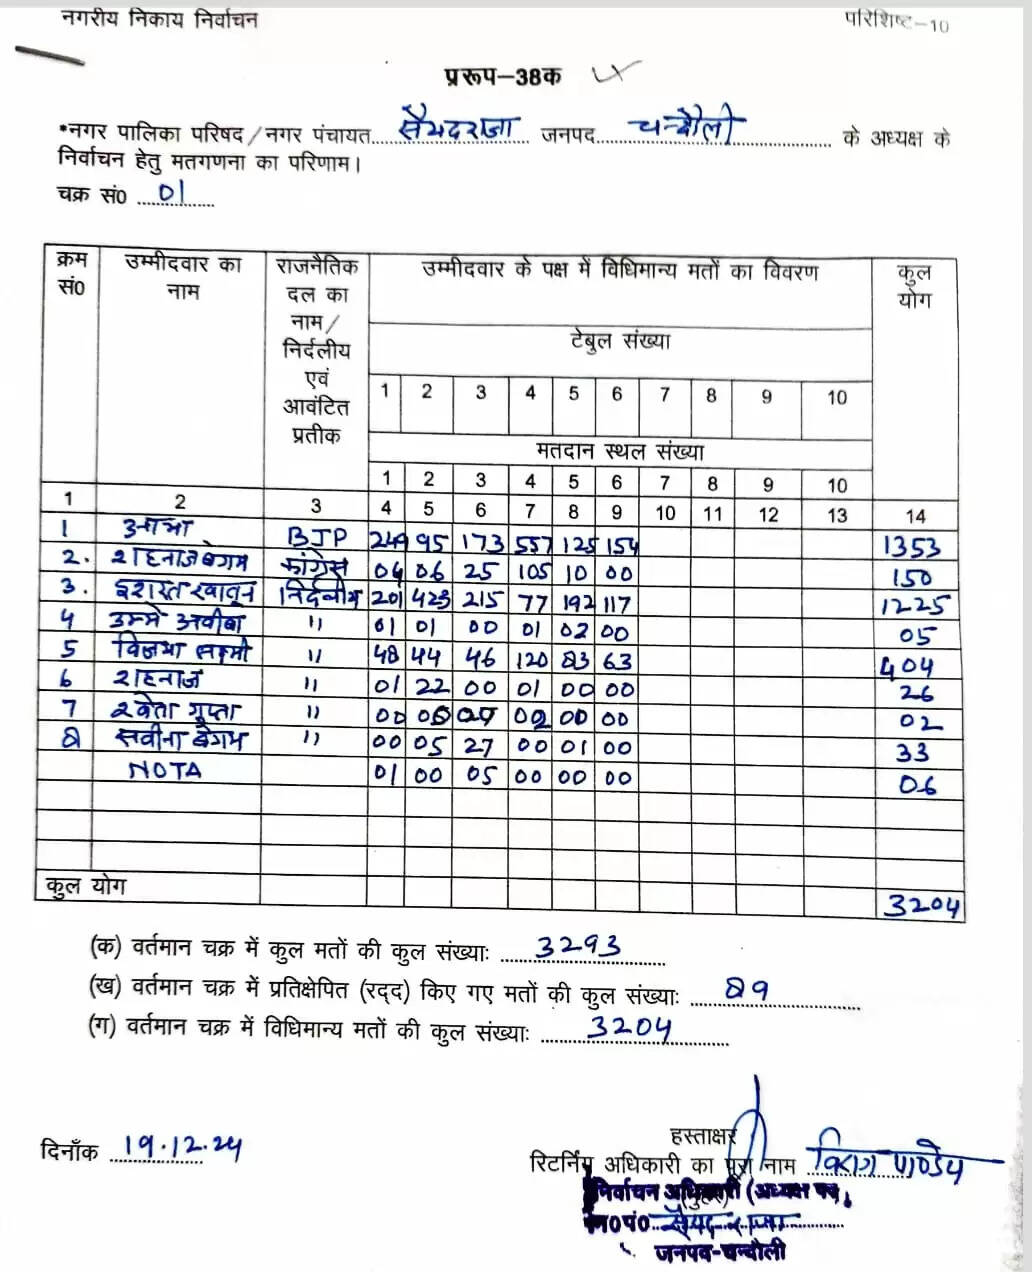 नगरीय निकाय निर्वाचन
परिशिष्ट-10
प्ररूप-38क
*नगर पालिका परिषद/नगर पंचायत सैयदराजा जनपद चन्दौली के अध्यक्ष के
निर्वाचन हेतु मतगणना का परिणाम।
चक्र सं0 01
क्रम सं0 उम्मीदवार का नाम राजनैतिक दल का नाम/निर्दलीय एवं आवंटित प्रतीक उम्मीदवार के पक्ष में विधिमान्य मतों का विवरण कुल योग
टेबुल संख्या
1 2 3 4 5 6 7 8 9 10
मतदान स्थल संख्या
1 2 3 4 5 6 7 8 9 10
1 2 3 4 5 6 7 8 9 10 11 12 13 14
1 आभा BJP 249 95 173 557 125 154 1353
2. शहनाज बेगम कांग्रेस 04 06 25 105 10 00 150
3. इशरत खातून निर्दलीय 201 423 215 77 192 117 1225
4 उम्मे " 01 01 00 01 02 00 05
5 विजया लक्ष्मी " 48 44 46 120 83 63 404
6 शहनाज " 01 22 00 01 00 00 26
7 श्वेता गुप्ता " 00 00 02 00 00 02
8 सबीना बेगम " 00 05 27 00 01 00 33
NOTA 01 00 05 00 00 00 06
कुल योग 3204
(क) वर्तमान चक्र में कुल मतों की कुल संख्याः 3293
(ख) वर्तमान चक्र में प्रतिक्षेपित (रद्द) किए गए मतों की कुल संख्याः 89
(ग) वर्तमान चक्र में विधिमान्य मतों की कुल संख्याः 3204
दिनाँक 19.12.24
हस्ताक्षर
रिटर्निंग अधिकारी का पूरा नाम पाण्डेय
(मुहर)
निर्वाचन अधिकारी (अध्यक्ष पद)
न0पं0 सैयदराजा
जनपद-चन्दौली